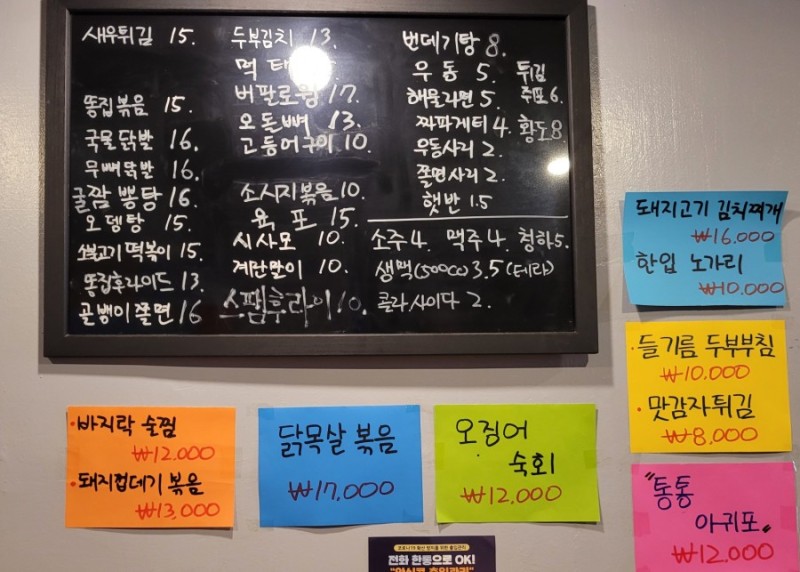 새우튀김 15.
똥집볶음 15.
국물닭발 16.
무뼈닭발 16.
굴짬뽕탕 16
오뎅탕 15.
소불고기 떡볶이 15
똥집후라이드 13
골뱅이쫄면 16
두부김치 13.
먹태
버팔로윙 17.
오돌뼈 13
고등어구이 10.
소시지볶음 10
육포 15.
시사모 10
계란말이 10.
스팸후라이 10.
번데기탕 8.
우동 5.
해물라면 5.
짜파게티 4.
우동사리 2.
쫄면사리 2.
햇반 1.5
튀김
쥐포 6.
황도 8
소주 4. 맥주 4. 청하 5.
생맥(500CC) 3.5 (테라)
콜라 사이다 2.
돼지고기 김치찌개
₩16.000
한입 노가리
₩10.000
·들기름 두부부침
₩10.000
·맛감자튀김
₩8.000
"통통
아귀포"
₩12.000
·바지락 술찜
₩12.000
·돼지껍데기 볶음
₩13.000
닭목살 볶음
₩17.000
오징어
숙회
₩12.000
전화 한통으로 OK!